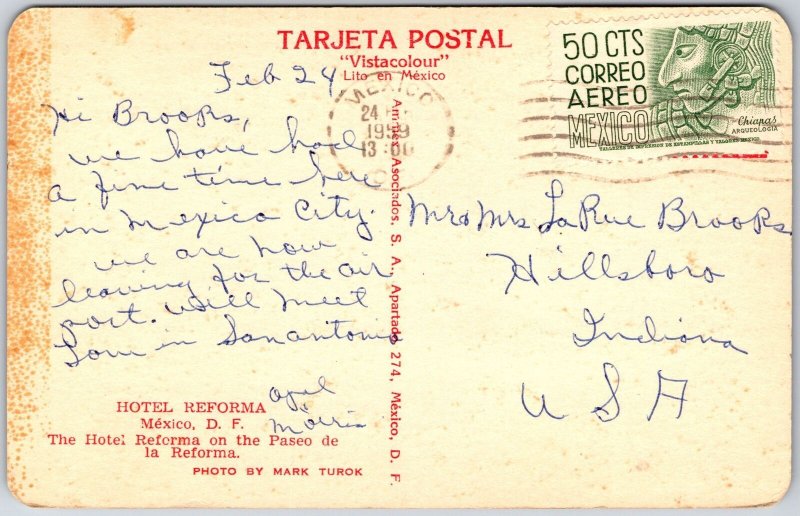 TARJETA POSTAL
"Vistacolour"
Lito en México
Feb 24
Hi Brooks,
we have had
a fine time here
in Mexico City.
we are now
leaving for the air
port. will meet
Tom in San antonio
Opal
Morris
HOTEL REFORMA
México, D. F.
The Hotel Reforma on the Paseo de
la Reforma.
PHOTO BY MARK TUROK
Asociados, S. A., Apartado 274, México, D. F.
MEXICO
24
1959
13
50 CTS
CORREO
AEREO
MEXICO
Chiapas
ARQUEOLOGIA
Mr & Mrs LaRue Brooks
Hillsboro
Indiana
U S A